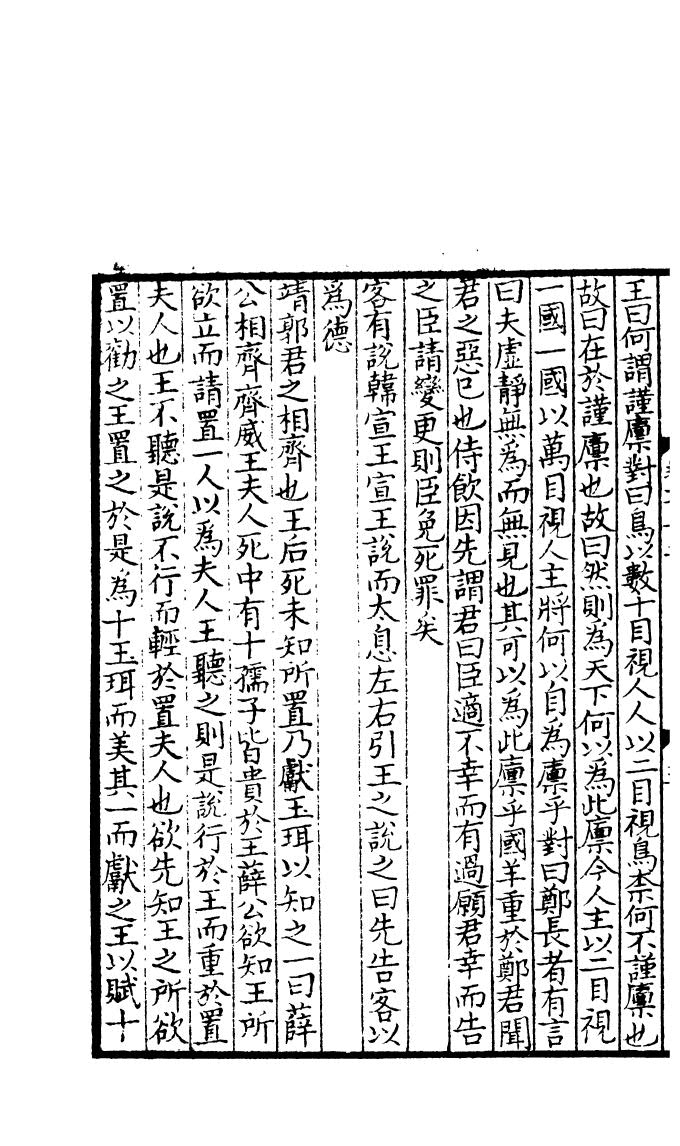 王曰何謂謹廩對曰鳥以數十目視人人以二目視鳥柰何不謹廩也
故曰在於謹廩也故曰然則為天下何以為此廩今人主以二目視
一國一國以萬目視人主將何以自為廩乎對曰鄭長者有言
曰夫虛靜無為而無見也其可以為此廩乎國羊重於鄭君聞
君之惡已也侍飲因先謂君曰臣適不幸而有過願君幸而告
之臣請變更則臣免死罪矣
客有說韓宣王宣王說而太息左右引王之說之曰先告客以
為德
靖郭君之相齊也王后死未知所置乃獻玉珥以知之一曰薛
公相齊齊威王夫人死中有十孺子皆貴於王薛公欲知王所
欲立而請置一人以為夫人王聽之則是說行於王而重於置
夫人也王不聽是說不行而輕於置夫人也欲先知王之所欲
置以勸之王置之於是為十玉珥而美其一而獻之王以賦十